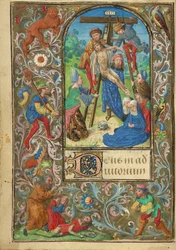 Deus in ad
iutorium